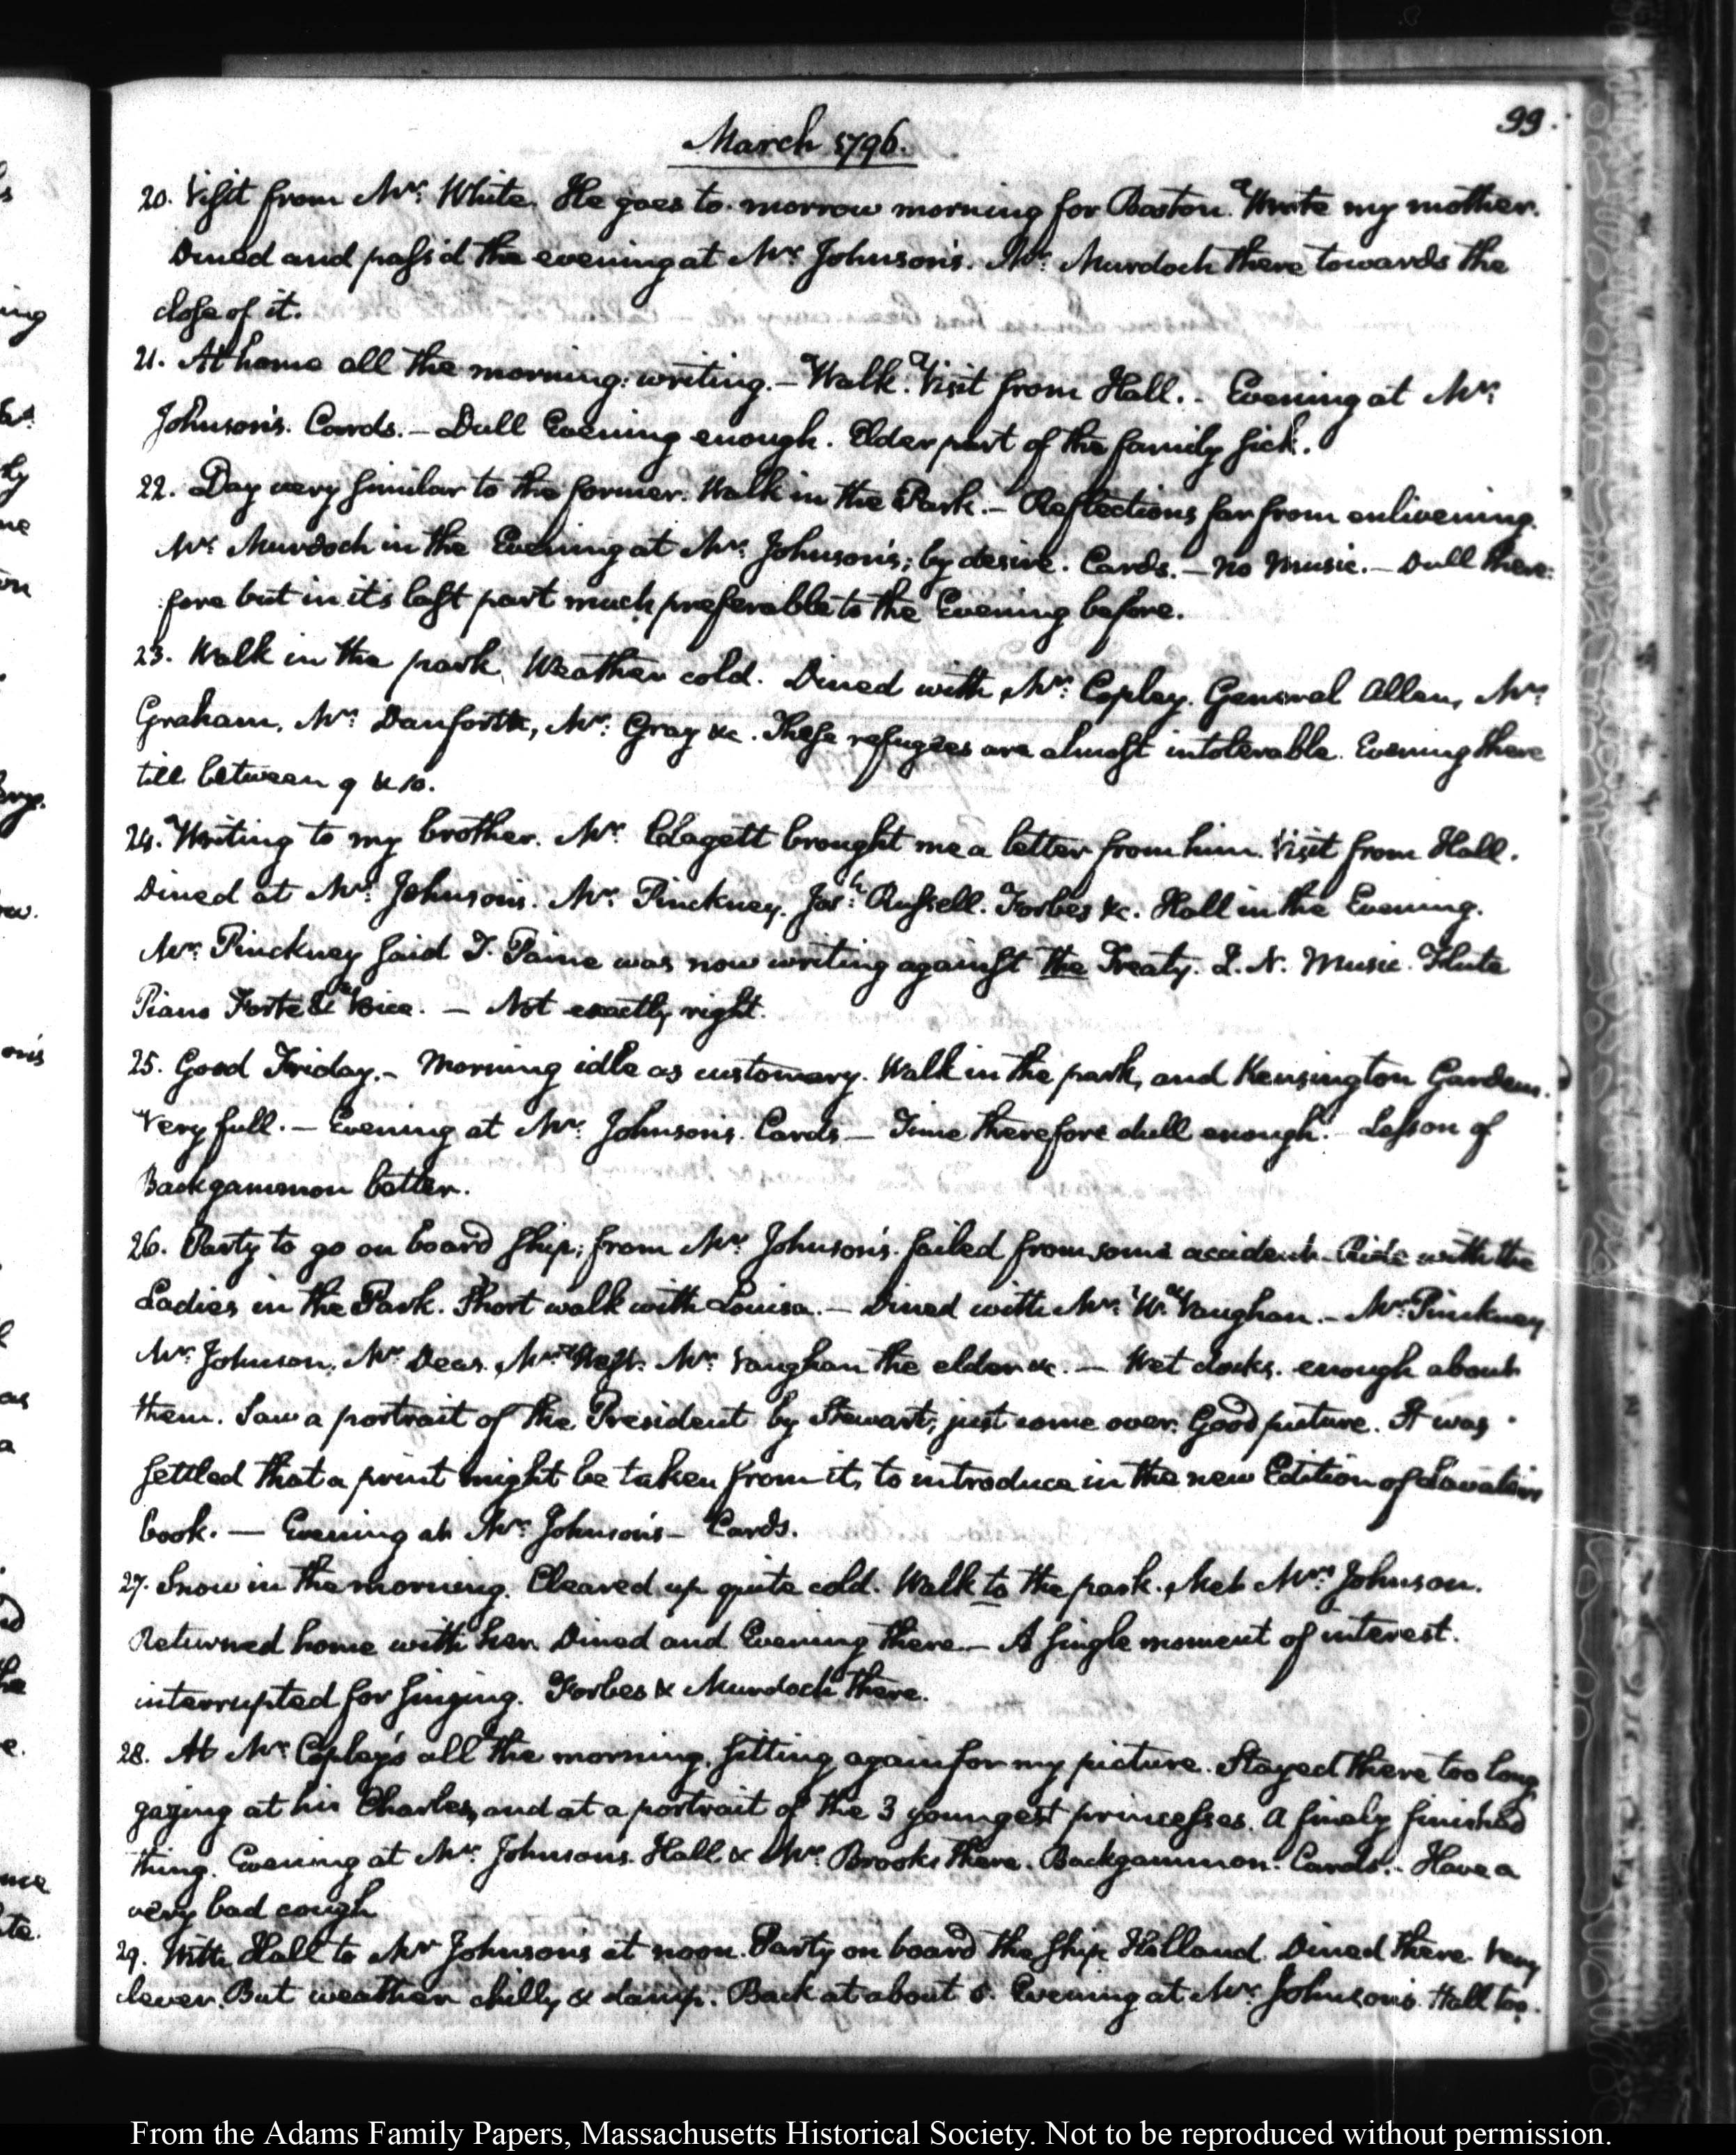 99.
March 1796.
20. Visit from Mr: White. He goes to-morrow morning for Boston. Wrote my mother.
Dined and pass'd the evening at Mr: Johnson's. Mr: Murdoch there towards the
close of it.
21. At home all the morning: writing. — Walk. Visit from Hall. - Evening at Mr:
Johnson's. Cards. — Dull Evening enough. Elder part of the family sick.
22. Day very similar to the former. Walk in the Park. — Reflections far from enlivening.
Mr: Murdoch in the Evening at Mr: Johnson's; by desire. Cards. — No Music. — Dull there:
fore but in it's last part much preferable to the Evening before.
23. Walk in the park. Weather cold. Dined with Mr: Copley. General Allen, Mr:
Graham, Mr: Danforth, Mr: Gray &c. These refugees are almost intolerable. Evening there
till between 9 & 10.
24. Writing to my brother. Mr: Clagett brought me a letter from him. Visit from Hall.
Dined at Mr: Johnson's. Mr: Pinckney. Josh: Russell. Forbes &c. Hall in the Evening.
Mr: Pinckney said T. Paine was now writing against the Treaty. L. N. Music. Flute
Piano Forte & Voice. — Not exactly right.
25. Good Friday. - Morning idle as customary. Walk in the park, and Kensington Gardens.
Very full. — Evening at Mr: Johnson's. Cards — Time therefore dull enough. Lesson of
Backgammon better.
26. Party to go on board ship; from Mr: Johnson's. failed from some accident. Ride with the
Ladies in the Park. Short walk with Louisa. — Dined with Mr: W. Vaughan. — Mr: Pinckney
Mr: Johnson, Mr: Deas, Mr: West. Mr: Vaughan the elder &c. — Wet docks. enough about
them. Saw a portrait of the President by Stewart; just come over. Good picture. It was
settled that a print might be taken from it, to introduce in the new Edition of Lavater's
book. — Evening at Mr: Johnson's — Cards.
27. Snow in the morning. Cleared up quite cold. Walk to the park. Met Mrs: Johnson.
Returned home with her. Dined and Evening there. — A single moment of interest.
interrupted for singing. Forbes & Murdoch there.
28. At Mr: Copley's all the morning. sitting again for my picture. Stayed there too long
gazing at his Charles, and at a portrait of the 3 youngest princesses. A finely finished
thing. Evening at Mr: Johnsons. Hall & Mr: Brooks there. Backgammon. Cards. - Have a
very bad cough
29. With Hall to Mr: Johnson's at noon. Party on board the ship Holland. Dined there. Very
clever. But weather chilly & damp. Back at about 6. Evening at Mr: Johnson's. Hall too.
From the Adams Family Papers, Massachusetts Historical Society. Not to be reproduced without permission.